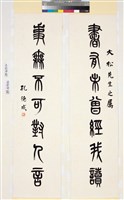 大松先生之屬
書有未曾經我讀
事無不可對人言
孔德成